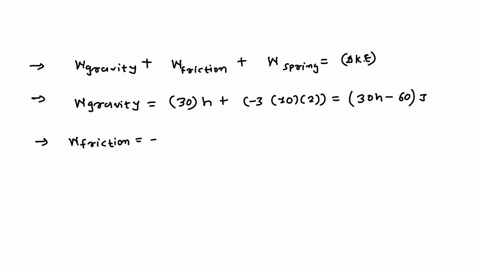 → Wgravity + Wfriction + Wspring = (ΔKE)
→ Wgravity = (30) h + (-3 (10)(2)) = (30h - 60) J
→ Wfriction = -